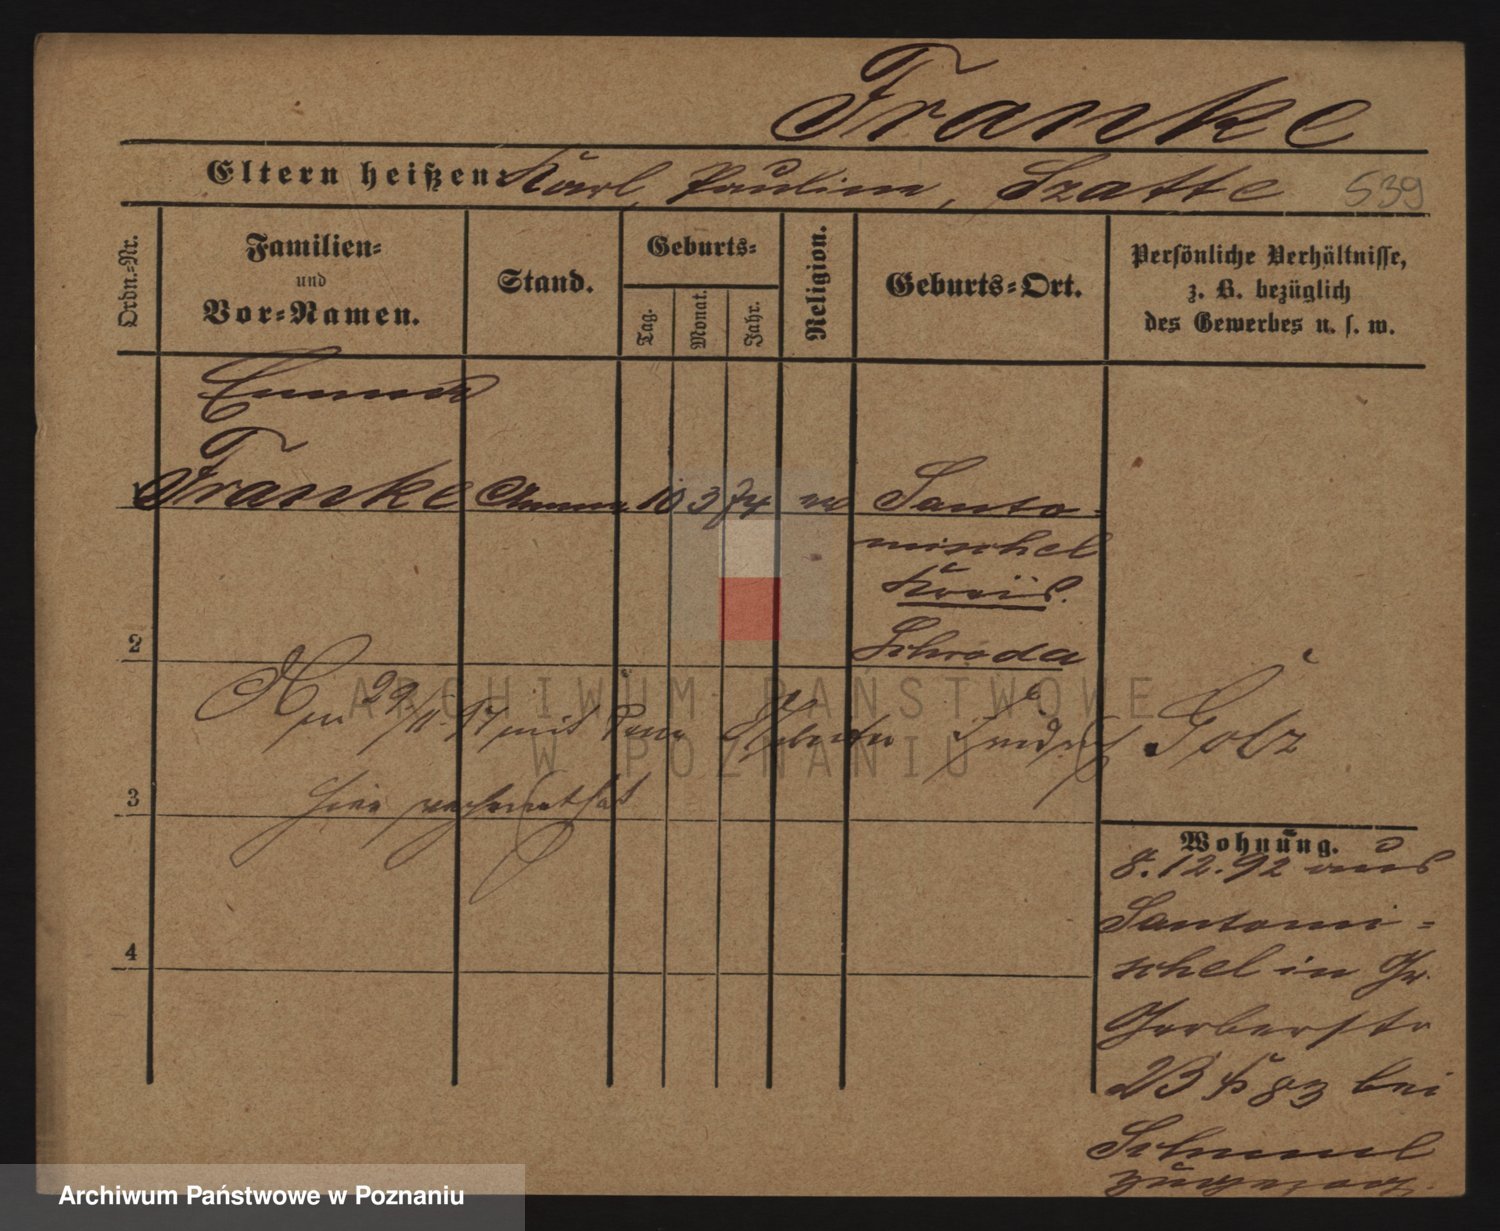 Franke
Eltern heißen: Karl, Pauline, Szatte 539
Ordn.-Nr.
Familien-
und
Vor-Namen.
Stand.
Geburts-
Tag.
Monat.
Jahr.
Religion.
Geburts-Ort.
Persönliche Verhältnisse,
z. B. bezüglich
des Gewerbes u. s. w.
Emma
1 Franke Amme 10 3 74 ev Santo-
mischel
Kreis
Schroda
2
29/11 97 mit Golz
hier
3
4
Wohnung.
8.12.92 aus
Santomi-
schel in Gr.
Gerberstr
23 bei
Schmul
ARCHIWUM PAŃSTWOWE
W POZNANIU
Archiwum Państwowe w Poznaniu